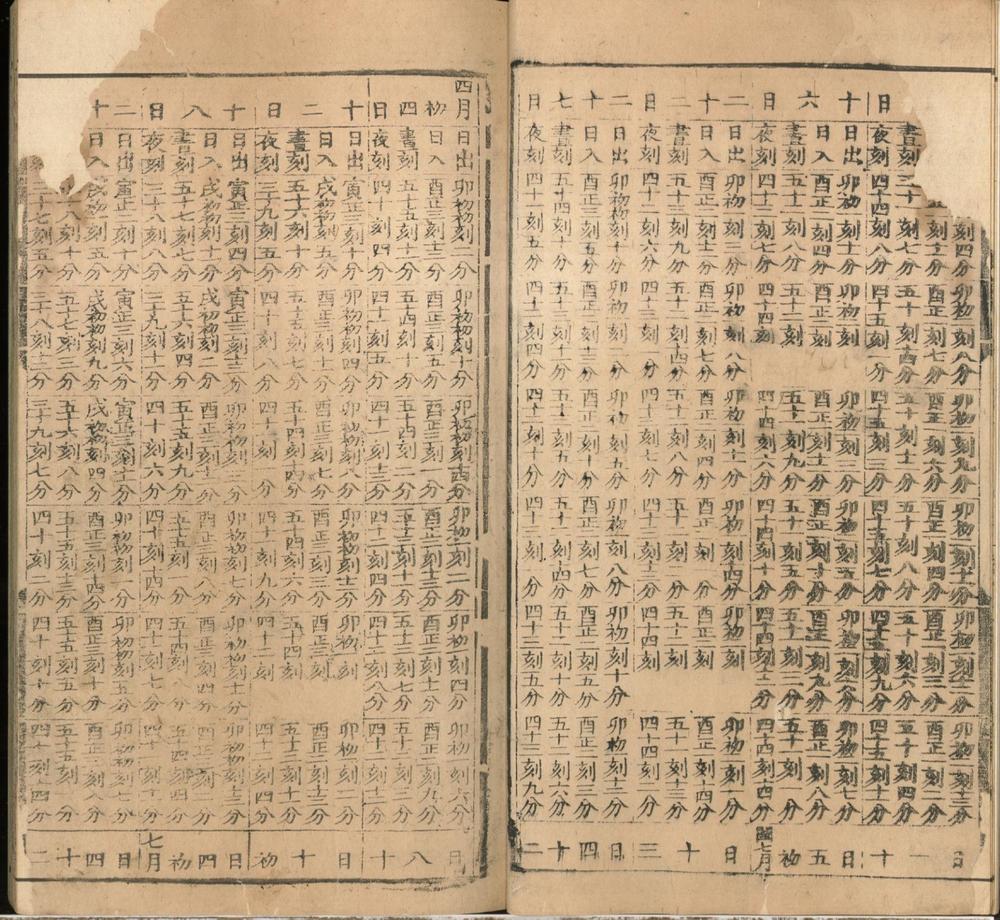 刻四分 卯初二刻八分 卯初二刻九分 卯初二刻十一分 卯初二刻十二分 卯初二刻十三分 日
刻十一分 酉正一刻七分 酉正一刻六分 酉正一刻四分 酉正一刻三分 酉正一刻二分 一
晝刻 五十一刻七分 五十刻十四分 五十刻十二分 五十刻八分 五十刻六分 五十刻四分 十
日 夜刻 四十四刻八分 四十五刻一分 四十五刻三分 四十五刻七分 四十五刻九分 四十五刻十一分
十 日出 卯初一刻十一分 卯初二刻 卯初二刻三分 卯初二刻五分 卯初二刻六分 卯初二刻七分 日
日入 酉正二刻四分 酉正二刻 酉正一刻十二分 酉正一刻十分 酉正一刻九分 酉正一刻八分 五
六 晝刻 五十二刻八分 五十二刻 五十一刻九分 五十一刻五分 五十一刻三分 五十一刻一分 初
日 夜刻 四十三刻七分 四十四刻 四十四刻六分 四十四刻十分 四十四刻十二分 四十四刻十四分 閏七月
二 日出 卯初一刻三分 卯初一刻八分 卯初一刻十一分 卯初一刻十四分 卯初二刻 卯初二刻一分 日
十 日入 酉正二刻十二分 酉正二刻七分 酉正二刻四分 酉正二刻一分 酉正二刻 酉正一刻十四分
二 晝刻 五十三刻九分 五十二刻十四分 五十二刻八分 五十二刻二分 五十二刻 五十一刻十三分 十
日 夜刻 四十二刻六分 四十三刻一分 四十三刻七分 四十三刻十三分 四十四刻 四十四刻二分 三
二 日出 卯初初刻十分 卯初一刻二分 卯初一刻五分 卯初一刻八分 卯初一刻十分 卯初一刻十二分 日
十 日入 酉正三刻五分 酉正二刻十三分 酉正二刻十分 酉正二刻七分 酉正二刻五分 酉正二刻三分 四
七 晝刻 五十四刻十分 五十三刻十一分 五十三刻五分 五十二刻十四分 五十二刻十分 五十二刻六分 十
日 夜刻 四十一刻五分 四十二刻四分 四十二刻十分 四十三刻一分 四十三刻五分 四十三刻九分 二
四月 日出 卯初初刻二分 卯初初刻十分 卯初初刻十四分 卯初一刻二分 卯初一刻四分 卯初一刻六分 日
初 日入 酉正三刻十三分 酉正三刻五分 酉正三刻一分 酉正二刻十三分 酉正二刻十一分 酉正二刻九分
四 晝刻 五十五刻十一分 五十四刻十分 五十四刻二分 五十三刻十一分 五十三刻七分 五十三刻三分 八
日 夜刻 四十刻四分 四十一刻五分 四十一刻十三分 四十二刻四分 四十二刻八分 四十二刻十二分 十
十 日出 寅正三刻十分 卯初初刻四分 卯初初刻八分 卯初初刻十二分 卯初一刻 卯初一刻二分 日
日入 戌初初刻五分 酉正三刻十一分 酉正三刻七分 酉正三刻三分 酉正三刻 酉正二刻十三分
二 晝刻 五十六刻十分 五十五刻七分 五十四刻十四分 五十四刻六分 五十四刻 五十三刻十一分 十
日 夜刻 三十九刻五分 四十刻八分 四十一刻一分 四十一刻九分 四十二刻 四十二刻四分 初
十 日出 寅正三刻四分 寅正三刻十三分 卯初初刻三分 卯初初刻七分 卯初初刻十一分 卯初初刻十三分 日
日入 戌初初刻十一分 戌初初刻二分 酉正三刻十二分 酉正三刻八分 酉正三刻四分 酉正三刻二分 四
八 晝刻 五十七刻七分 五十六刻四分 五十五刻九分 五十五刻一分 五十四刻八分 五十四刻四分 初
日 夜刻 三十八刻八分 三十九刻十一分 四十刻六分 四十刻十四分 四十一刻七分 四十一刻十一分 七月
二 日出 寅正二刻十分 寅正三刻六分 寅正三刻十一分 卯初初刻一分 卯初初刻五分 卯初初刻七分 日
十 日入 戌初一刻五分 戌初初刻九分 戌初初刻四分 酉正三刻十四分 酉正三刻十分 酉正三刻八分 四
八刻十分 五十七刻三分 五十六刻八分 五十五刻十三分 五十五刻五分 五十五刻一分 十
三十七刻五分 三十八刻十二分 三十九刻七分 四十刻二分 四十刻十分 四十刻十四分 二